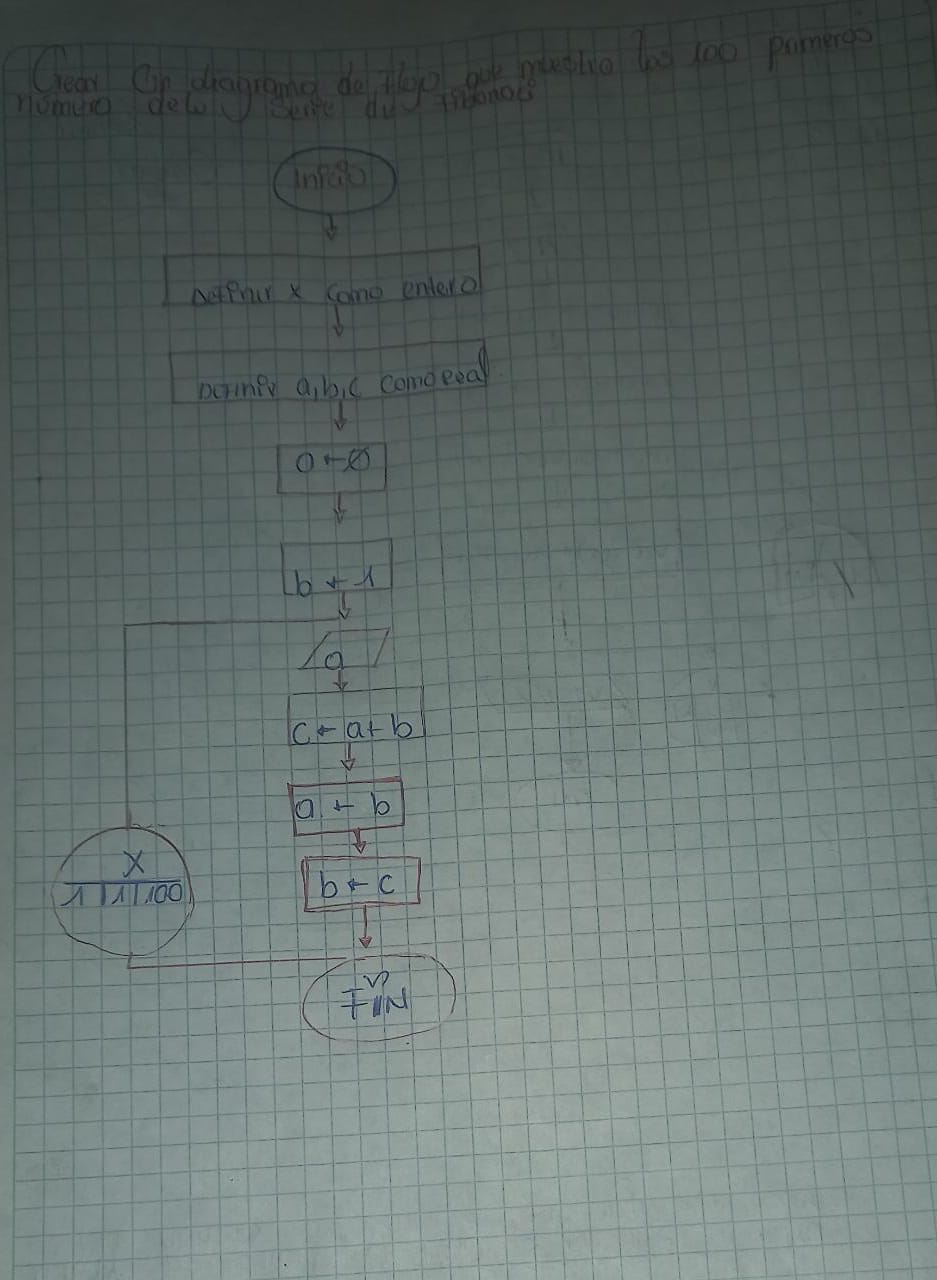 Crear Un diagrama de flujo que muestro los 100 primeros
número de la serie de fibonaci
Inicio
Definir x como entero
Definir a,b,c como real
a ← 0
b ← 1
a
c ← a + b
a ← b
b ← c
x
1 | 1 | 100
FIN